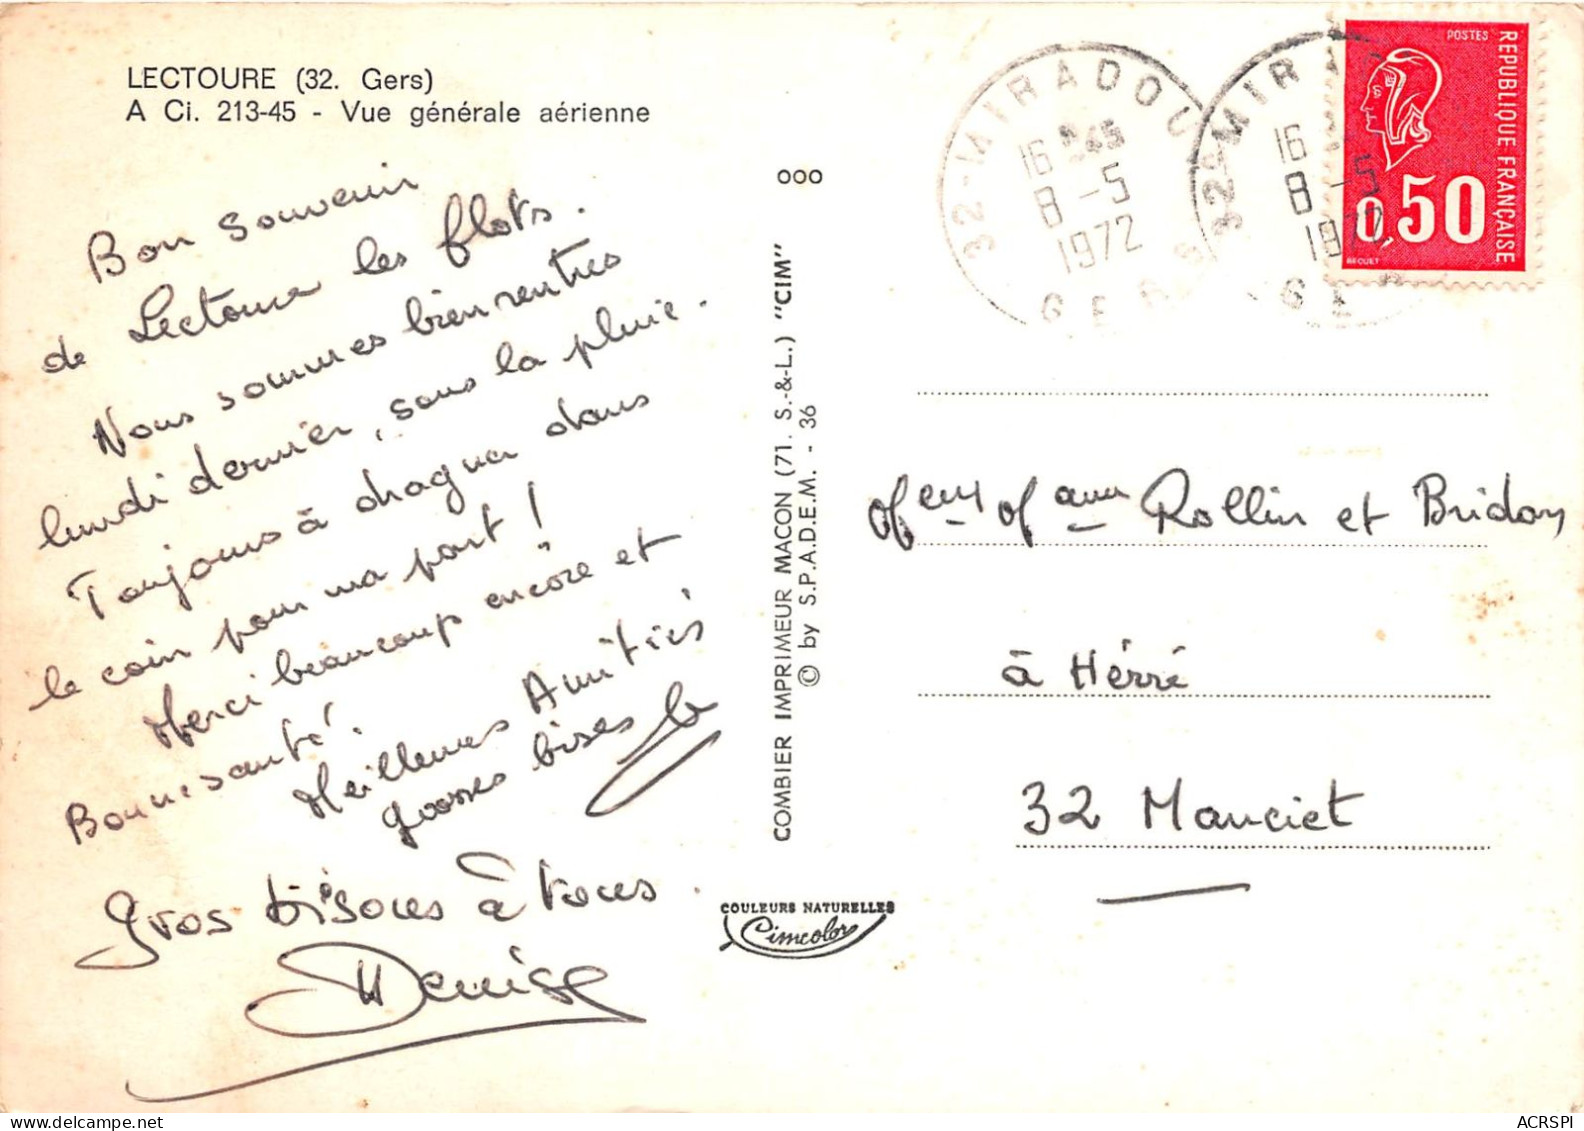 LECTOURE (32. Gers)
A Ci. 213-45 - Vue générale aérienne
Bon souvenir
de Lectoure les flots.
Nous sommes bien rentrés
lundi dernier, sous la pluie.
Toujours à chaque dans
le coin pour ma part !
Merci beaucoup encore et
Bonne santé.
Meilleures Amitiés
grosses bises
Gros bisous à tous.
Denise
COMBIER IMPRIMEUR MACON (71. S.-&-L.) "CIM"
© by S.P.A.D.E.M. - 36
ooo
COULEURS NATURELLES
Cimcolor
32-MIRADOU
16 45
8 -5
1972
GERS
32-MIRA
16
8 -5
1972
GER
POSTES
REPUBLIQUE FRANÇAISE
0,50
BEQUET
Rollin et Bridon
à Hérré
32 Manciet
ACRSPI